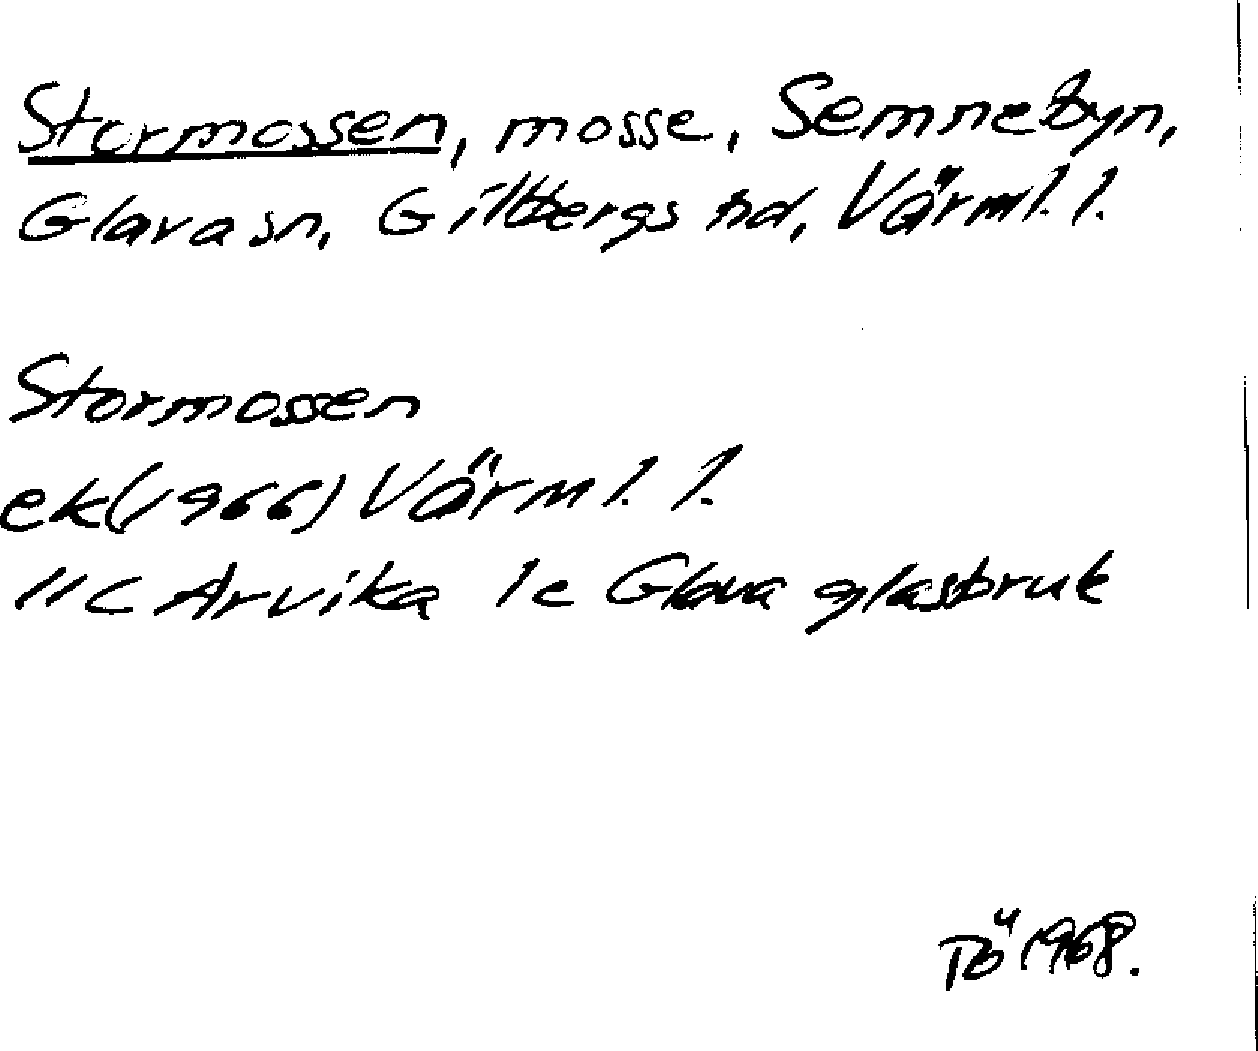 Stormossen, mosse, Semnebyn,
Glava sn, Gillbergs hd, Värml. l.
Stormossen
ek (1966) Värml. l.
11c Arvika 1c Glava glasbruk
TÖ 1968.